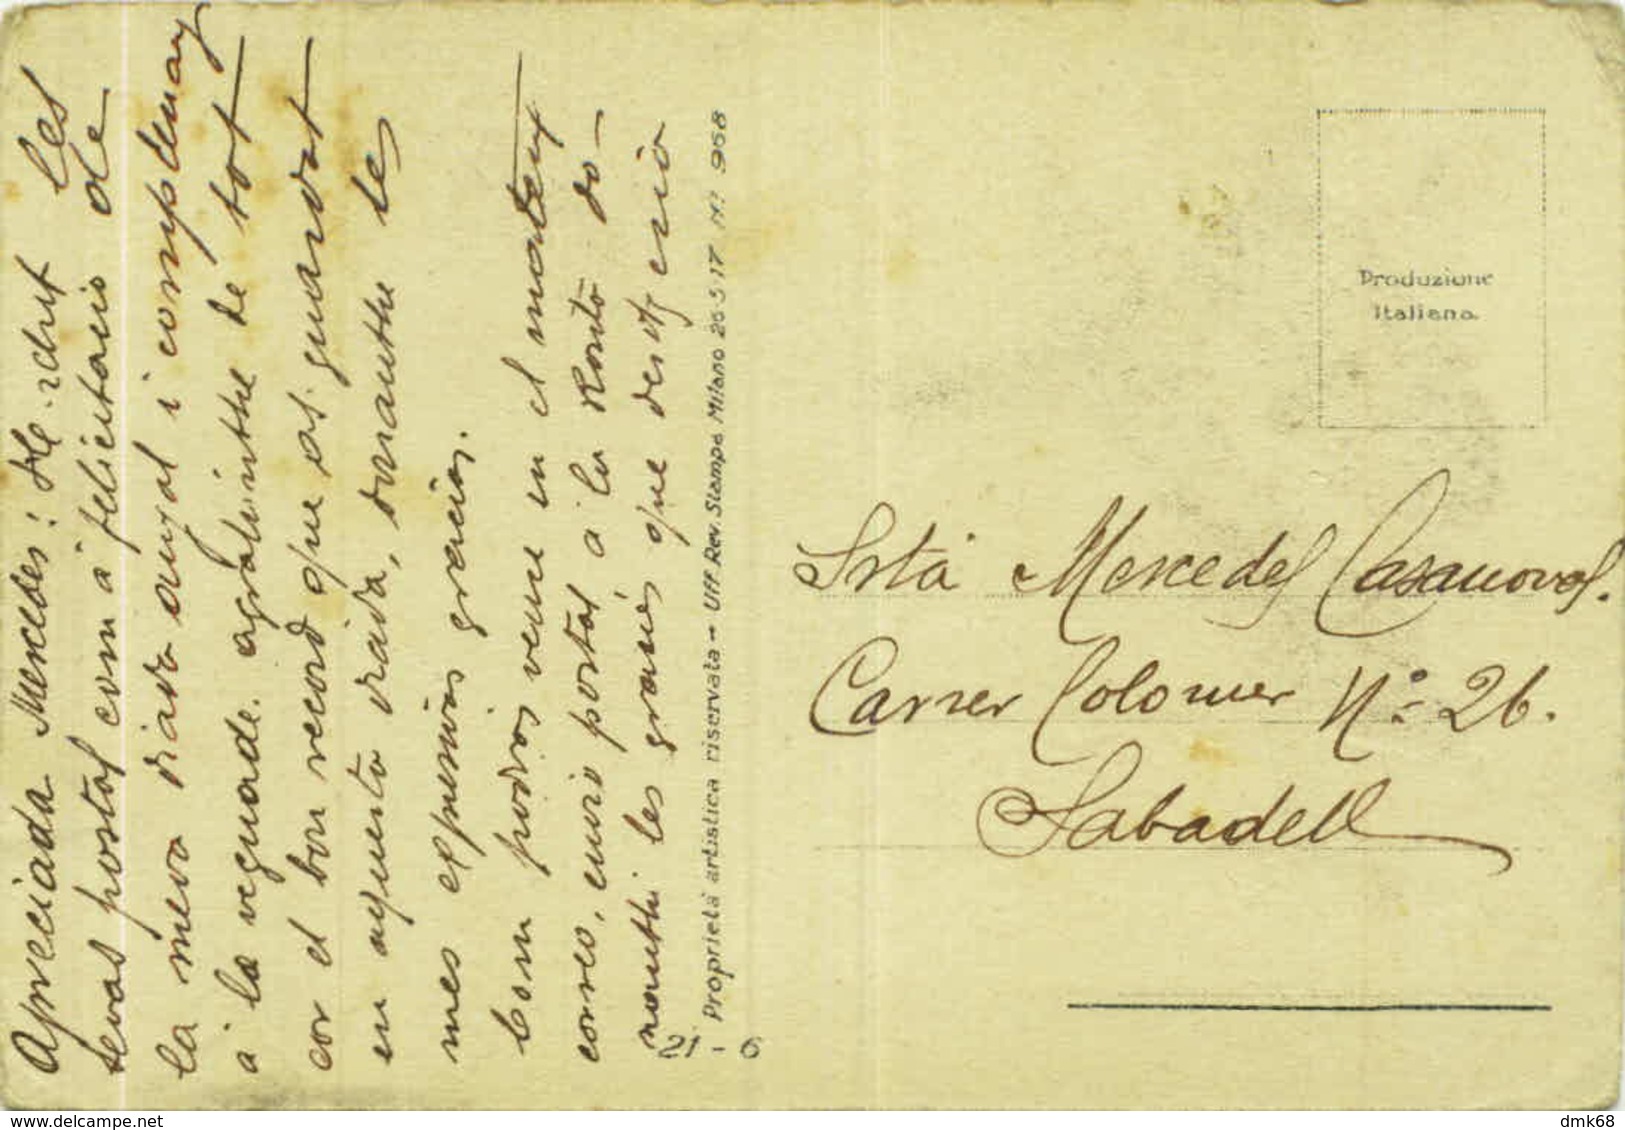 Apreciada Mercedes: He rebut les
tevas postal com a felicitacio de
la meva diada onyal i complemany
à la vegnade. agraintthe de tot
cor el bon record que as guardat
en aquesta diada, donantthe les
mes expressivas gracias.
Com podras veure en el mateix
correo, envio postal a la Ronto do-
nantthi les gracies que desitj
21 - 6
Proprietà artistica riservata - Uff. Rev. Stampa Milano 26 5 17 Nº 968
Produzione
Italiana.
Srta Mercedes Casanovas.
Carrer Colomer Nº 26.
Sabadell
dmk68